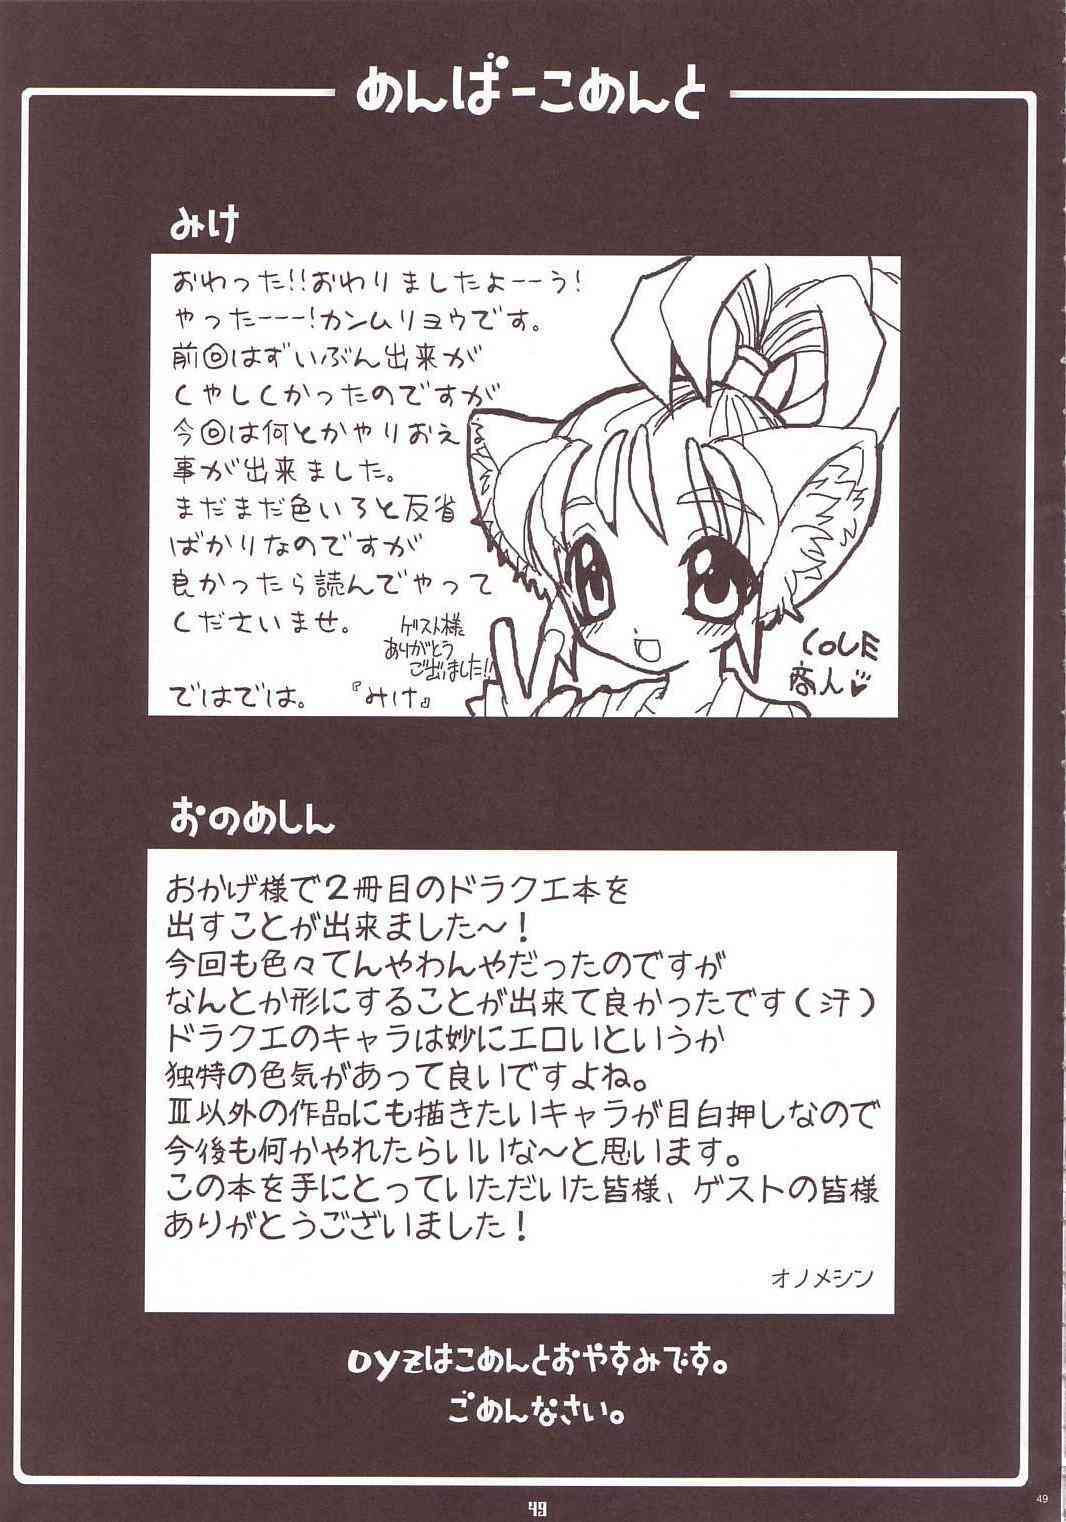 めんばーこめんと
みけ
おわった!!おわりましたよーーう!
やったーーー!カンムリョウです。
前回はずいぶん出来が
くやしくかったのですが
今回は何とかやりおえる
事が出来ました。
まだまだ色いろと反省
ばかりなのですが
良かったら読んでやって
くださいませ。
ゲスト様
ありがとう
ご出ました!!
ではでは。 『みけ』
商人
おのめしん
おかげ様で2冊目のドラクエ本を
出すことが出来ました〜!
今回も色々てんやわんやだったのですが
なんとか形にすることが出来て良かったです(汗)
ドラクエのキャラは妙にエロいというか
独特の色気があって良いですよね。
Ⅲ以外の作品にも描きたいキャラが目白押しなので
今後も何かやれたらいいな〜と思います。
この本を手にとっていただいた皆様、ゲストの皆様
ありがとうございました!
オノメシン
OYZはこめんとおやすみです。
ごめんなさい。
49
49